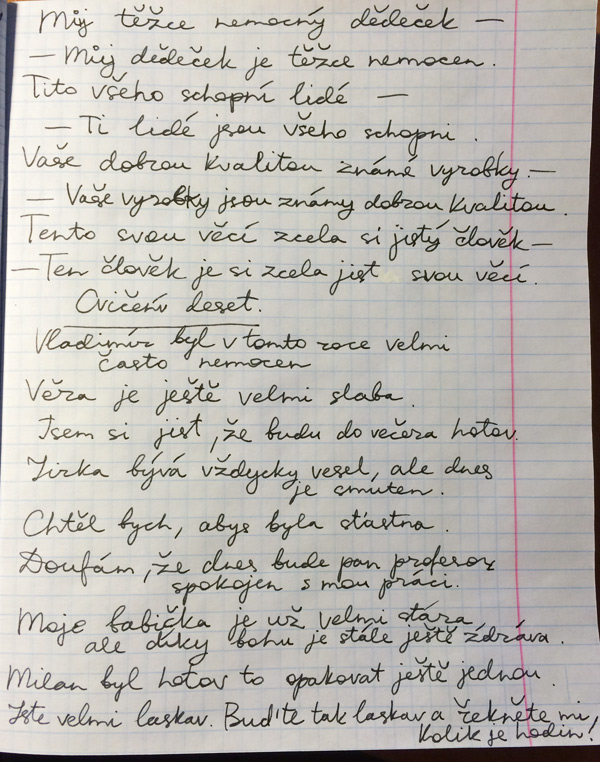 Můj těžce nemocný dědeček —
— Můj dědeček je těžce nemocen.
Tito všeho schopní lidé —
— Ti lidé jsou všeho schopni.
Vaše dobrou kvalitou známé vyrobky. —
— Vaše vyrobky jsou známy dobrou kvalitou.
Tento svou věcí zcela si jistý člověk —
— Ten člověk je si zcela jist svou věcí.
Cvičení deset.
Vladimír byl v tomto roce velmi
často nemocen
Věra je ještě velmi slaba.
Jsem si jist, že budu do večera hotov.
Jirka bývá vždycky vesel, ale dnes
je smuten.
Chtěl bych, abys byla šťastna.
Doufám, že dnes bude pan profesor
spokojen s mou práci.
Moje babička je už velmi stára,
ale díky bohu je stále ještě zdráva.
Milan byl hotov to opakovat ještě jednou.
Jste velmi laskav. Buďte tak laskav a řekněte mi,
kolik je hodin!